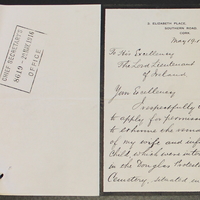 CHIEF SECRETARY'S
OFFICE
2, ELIZABETH PLACE,
SOUTHERN ROAD,
CORK.
May 19
To His Excellency
The Lord Lieutenant
of Ireland
Your Excellency
I respectfully
to apply for permission
to exhume the
of my wife and
child which were
in the Douglas
Cemetery, situated in